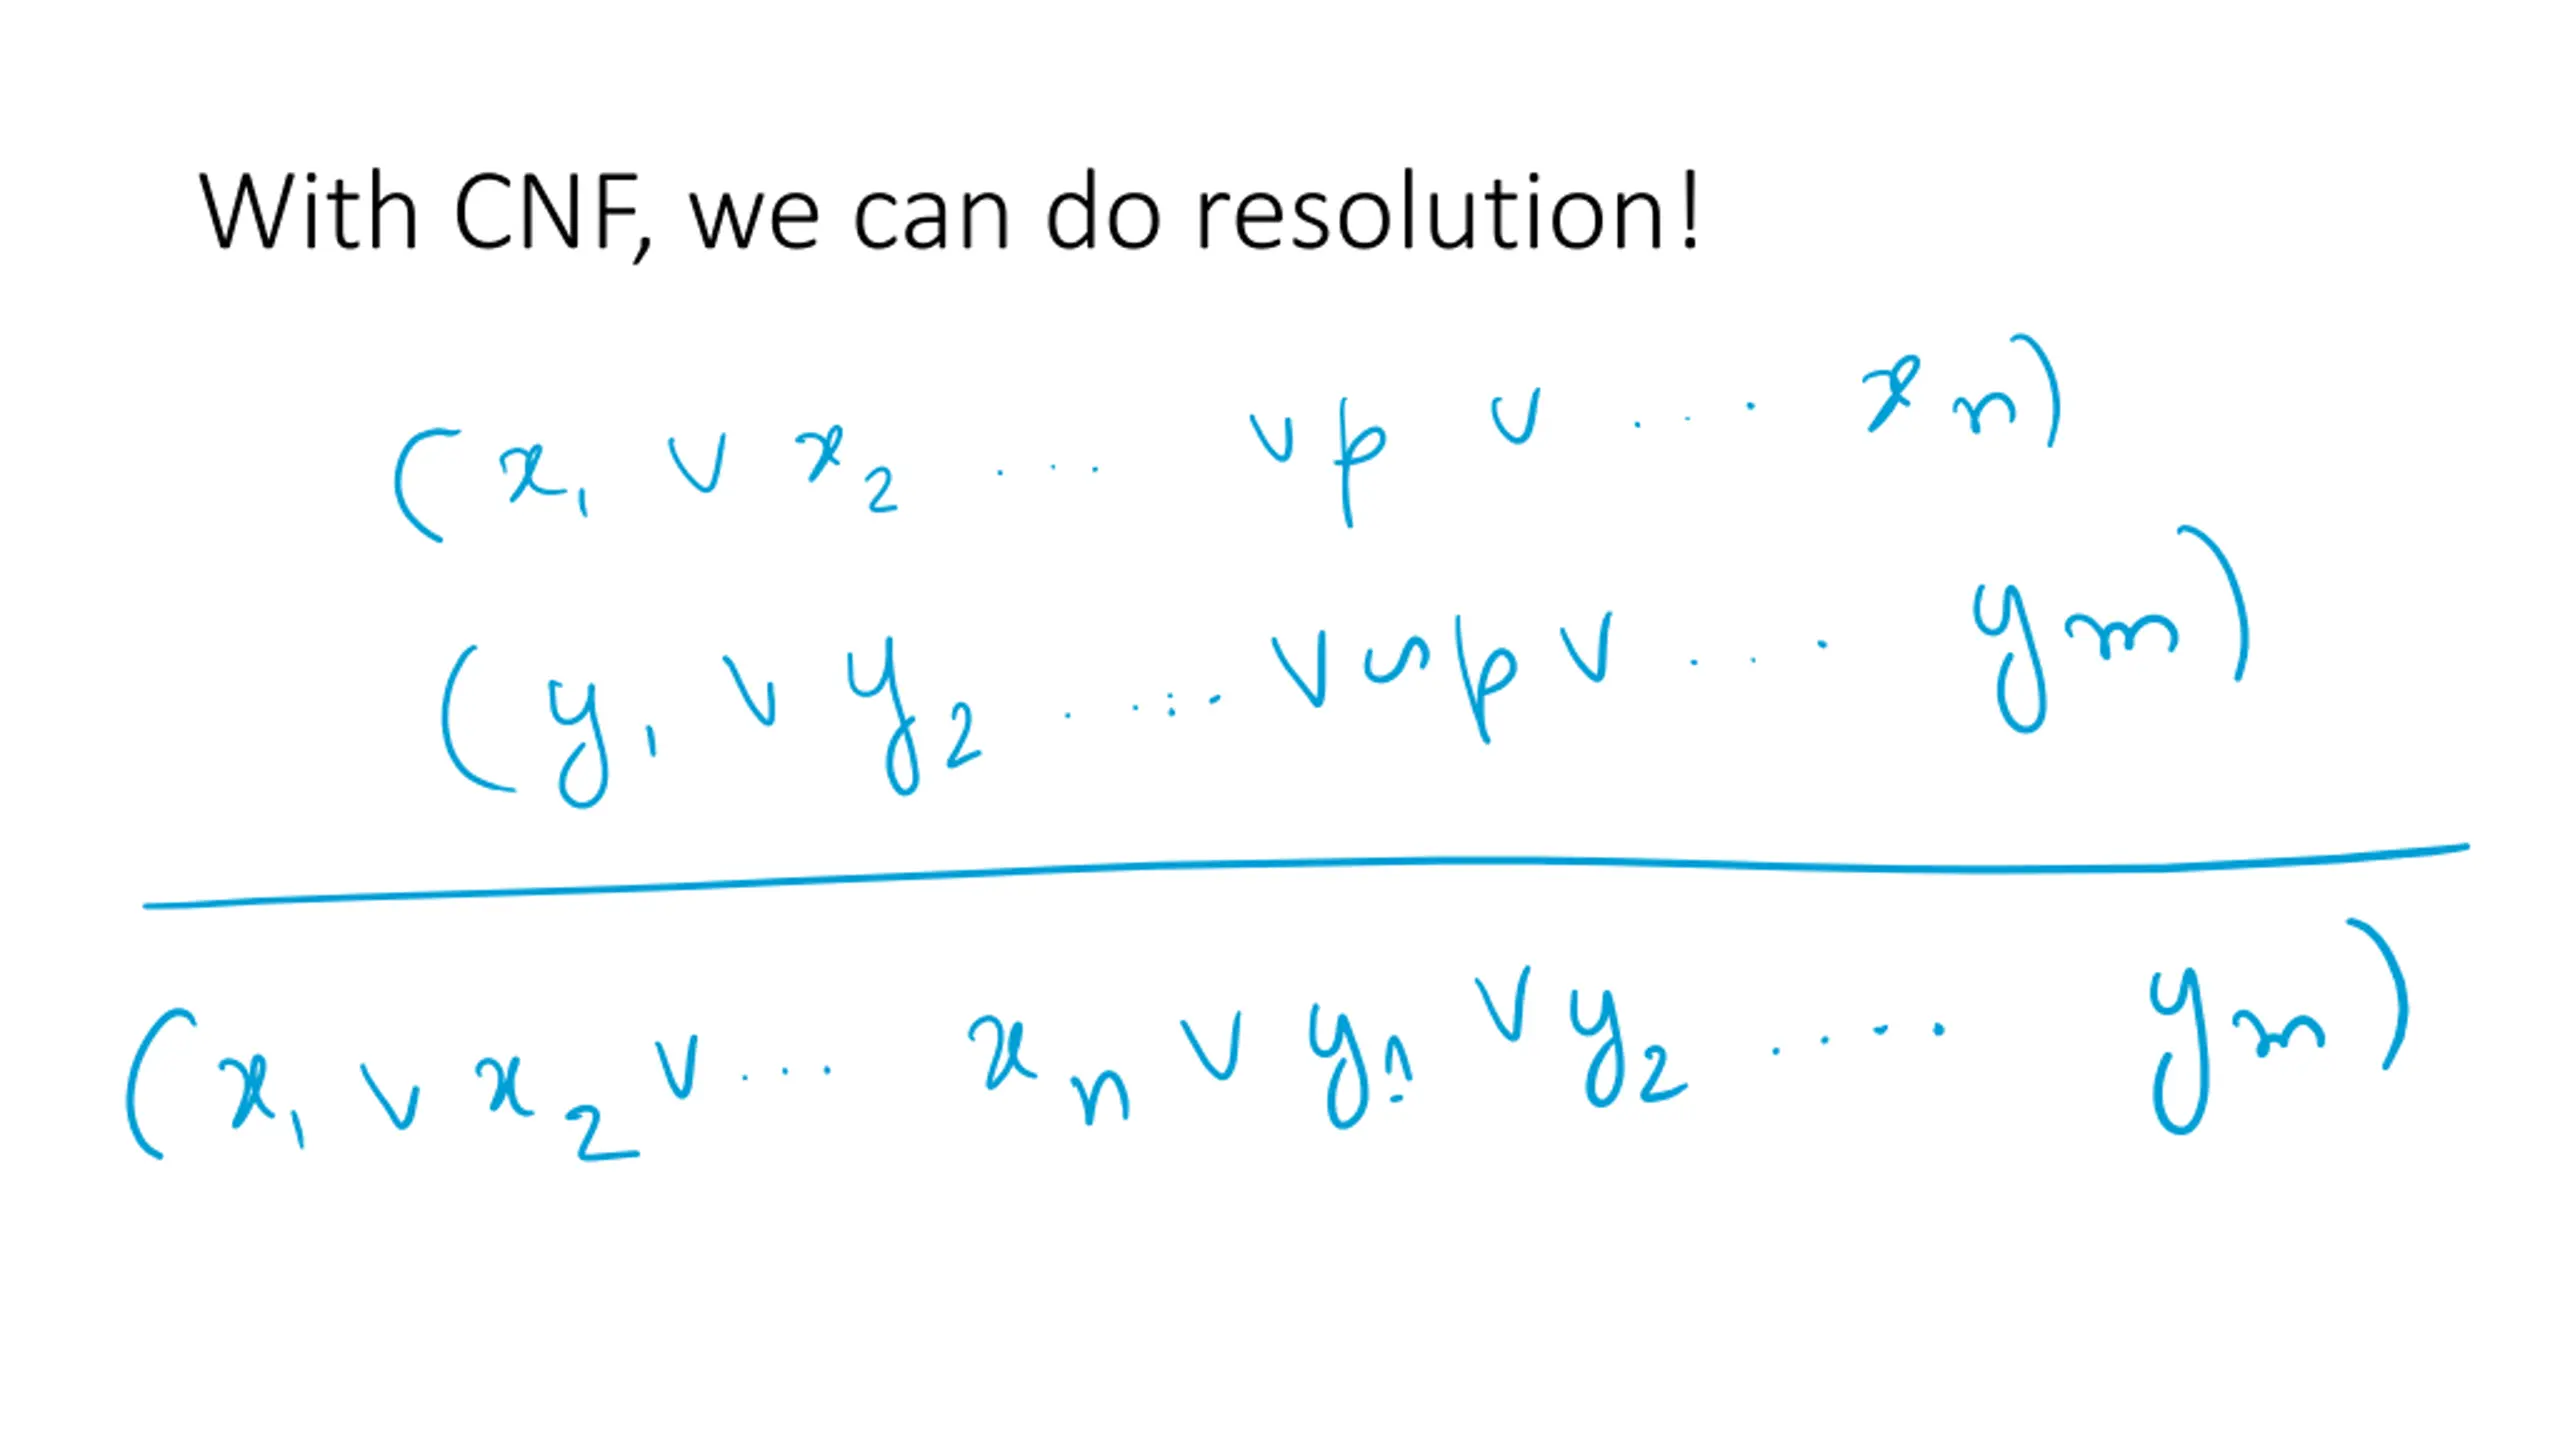 With CNF, we can do resolution!
(x₁ ∨ x₂ ... ∨ p ∨ ... xₙ)
(y₁ ∨ y₂ ..... ∨ ~p ∨ ... yₘ)
(x₁ ∨ x₂ ∨ ... xₙ ∨ y₁ ∨ y₂ .... yₘ)